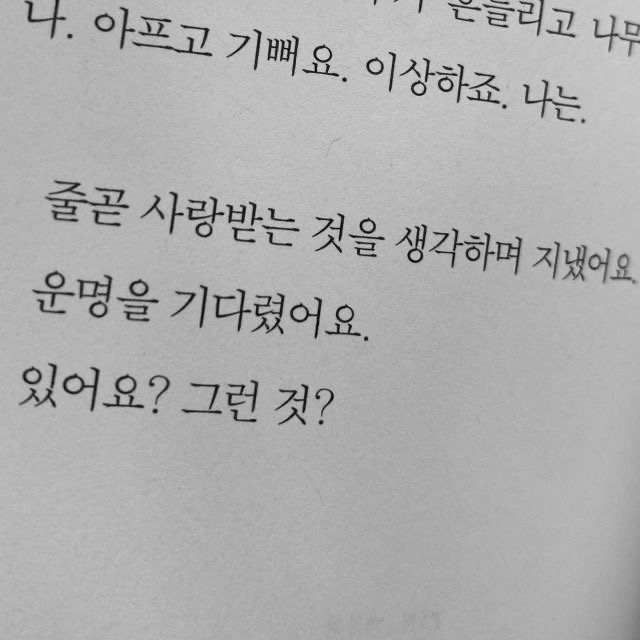 흔들리고 나무
나. 아프고 기뻐요. 이상하죠. 나는.
줄곧 사랑받는 것을 생각하며 지냈어요.
운명을 기다렸어요.
있어요? 그런 것?